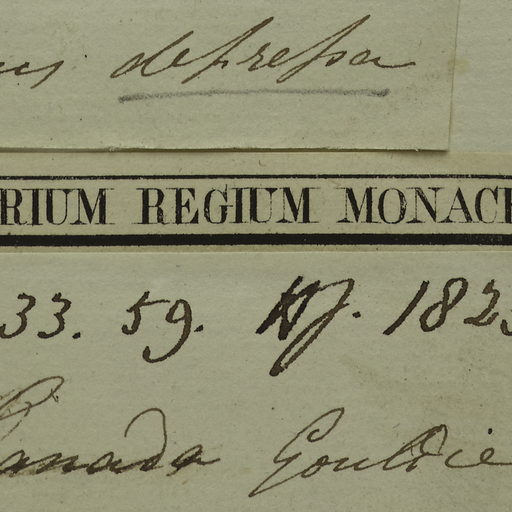 us depressa
RIUM REGIUM MONAC
33. 59. 182
Canada Gouldie